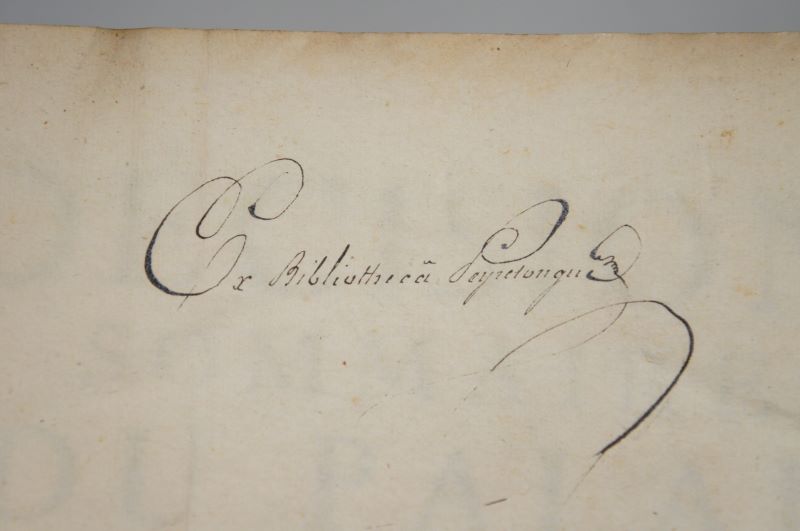 Ex Bibliothecâ Peyrelongue